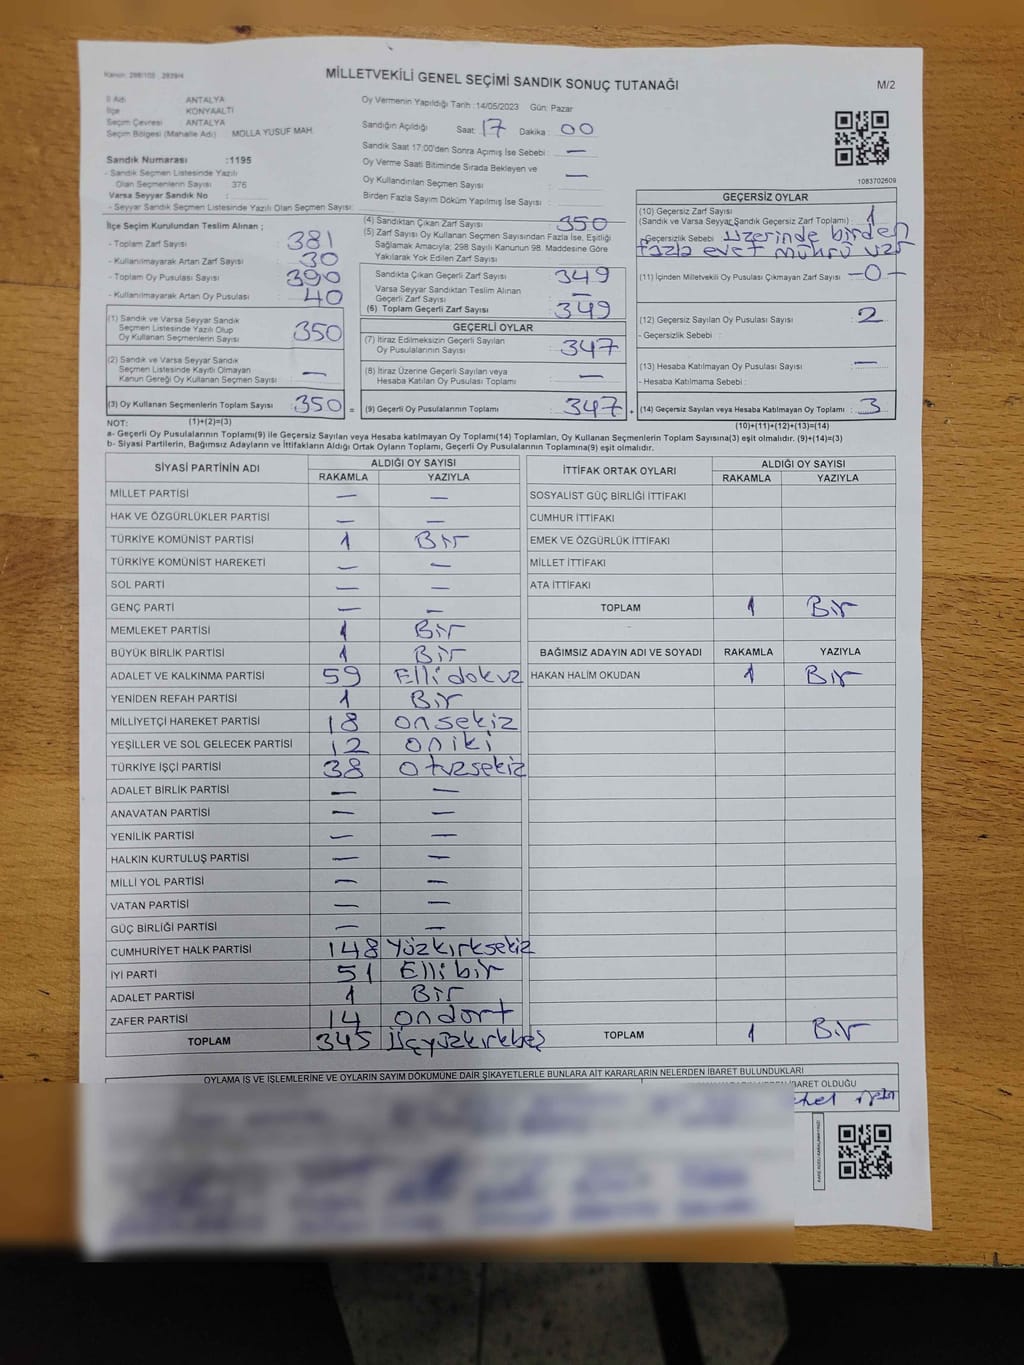 Kanun: 298/105 , 2839/4
MİLLETVEKİLİ GENEL SEÇİMİ SANDIK SONUÇ TUTANAĞI
M/2
İl Adı ANTALYA
İlçe KONYAALTI
Seçim Çevresi ANTALYA
Seçim Bölgesi (Mahalle Adı) MOLLA YUSUF MAH.
Sandık Numarası :1195
- Sandık Seçmen Listesinde Yazılı
Olan Seçmenlerin Sayısı : 376
Varsa Seyyar Sandık No :
- Seyyar Sandık Seçmen Listesinde Yazılı Olan Seçmen Sayısı:
Oy Vermenin Yapıldığı Tarih :14/05/2023 Gün: Pazar
Sandığın Açıldığı Saat: 17 Dakika : 00
Sandık Saat 17:00'den Sonra Açımış İse Sebebi : —
Oy Verme Saati Bitiminde Sırada Bekleyen ve
Oy Kullandırılan Seçmen Sayısı : —
Birden Fazla Sayım Döküm Yapılmış İse Sayısı :
1083702609
İlçe Seçim Kurulundan Teslim Alınan ;
- Toplam Zarf Sayısı : 381
- Kullanılmayarak Artan Zarf Sayısı : 30
- Toplam Oy Pusulası Sayısı : 390
- Kullanılmayarak Artan Oy Pusulası : 40
(1) Sandık ve Varsa Seyyar Sandık
Seçmen Listesinde Yazılı Olup
Oy Kullanan Seçmenlerin Sayısı : 350
(2) Sandık ve Varsa Seyyar Sandık
Seçmen Listesinde Kayıtlı Olmayan
Kanun Gereği Oy Kullanan Seçmen Sayısı : —
(3) Oy Kullanan Seçmenlerin Toplam Sayısı : 350 =
(1)+(2)=(3)
(4) Sandıktan Çıkan Zarf Sayısı : 350
(5) Zarf Sayısı Oy Kullanan Seçmen Sayısından Fazla İse, Eşitliği
Sağlamak Amacıyla; 298 Sayılı Kanunun 98. Maddesine Göre
Yakılarak Yok Edilen Zarf Sayısı :
Sandıkta Çıkan Geçerli Zarf Sayısı : 349
Varsa Seyyar Sandıktan Teslim Alınan
Geçerli Zarf Sayısı : —
(6) Toplam Geçerli Zarf Sayısı : 349
GEÇERLİ OYLAR
(7) İtiraz Edilmeksizin Geçerli Sayılan
Oy Pusulalarının Sayısı : 347
(8) İtiraz Üzerine Geçerli Sayılan veya
Hesaba Katılan Oy Pusulası Toplamı : —
(9) Geçerli Oy Pusulalarının Toplamı : 347 +
GEÇERSİZ OYLAR
(10) Geçersiz Zarf Sayısı
(Sandık ve Varsa Seyyar Sandık Geçersiz Zarf Toplamı) : 1
- Geçersizlik Sebebi : üzerinde birden
fazla evet mührü var
(11) İçinden Milletvekili Oy Pusulası Çıkmayan Zarf Sayısı : -0-
(12) Geçersiz Sayılan Oy Pusulası Sayısı : 2
- Geçersizlik Sebebi :
(13) Hesaba Katılmayan Oy Pusulası Sayısı : —
- Hesaba Katılmama Sebebi :
(14) Geçersiz Sayılan veya Hesaba Katılmayan Oy Toplamı : 3
(10)+(11)+(12)+(13)=(14)
NOT:
a- Geçerli Oy Pusulalarının Toplamı(9) ile Geçersiz Sayılan veya Hesaba Katılmayan Oy Toplamı(14) Toplamları, Oy Kullanan Seçmenlerin Toplam Sayısına(3) eşit olmalıdır. (9)+(14)=(3)
b- Siyasi Partilerin, Bağımsız Adayların ve İttifakların Aldığı Ortak Oyların Toplamı, Geçerli Oy Pusulalarının Toplamına(9) eşit olmalıdır.
SİYASİ PARTİNİN ADI ALDIĞI OY SAYISI
RAKAMLA YAZIYLA
MİLLET PARTİSİ — —
HAK VE ÖZGÜRLÜKLER PARTİSİ — —
TÜRKİYE KOMÜNİST PARTİSİ 1 Bir
TÜRKİYE KOMÜNİST HAREKETİ — —
SOL PARTİ — —
GENÇ PARTİ — —
MEMLEKET PARTİSİ 1 Bir
BÜYÜK BİRLİK PARTİSİ 1 Bir
ADALET VE KALKINMA PARTİSİ 59 Ellidokuz
YENİDEN REFAH PARTİSİ 1 Bir
MİLLİYETÇİ HAREKET PARTİSİ 18 onsekiz
YEŞİLLER VE SOL GELECEK PARTİSİ 12 oniki
TÜRKİYE İŞÇİ PARTİSİ 38 otuzsekiz
ADALET BİRLİK PARTİSİ — —
ANAVATAN PARTİSİ — —
YENİLİK PARTİSİ — —
HALKIN KURTULUŞ PARTİSİ — —
MİLLİ YOL PARTİSİ — —
VATAN PARTİSİ — —
GÜÇ BİRLİĞİ PARTİSİ — —
CUMHURİYET HALK PARTİSİ 148 Yüzkırksekiz
İYİ PARTİ 51 Ellibir
ADALET PARTİSİ 1 Bir
ZAFER PARTİSİ 14 ondört
TOPLAM 345 üçyüzkırkbeş
İTTİFAK ORTAK OYLARI ALDIĞI OY SAYISI
RAKAMLA YAZIYLA
SOSYALİST GÜÇ BİRLİĞİ İTTİFAKI
CUMHUR İTTİFAKI
EMEK VE ÖZGÜRLÜK İTTİFAKI
MİLLET İTTİFAKI
ATA İTTİFAKI
TOPLAM 1 Bir
BAĞIMSIZ ADAYIN ADI VE SOYADI RAKAMLA YAZIYLA
HAKAN HALİM OKUDAN 1 Bir
TOPLAM 1 Bir
OYLAMA İŞ VE İŞLEMLERİNE VE OYLARIN SAYIM DÖKÜMÜNE DAİR ŞİKAYETLERLE BUNLARA AİT KARARLARIN NELERDEN İBARET BULUNDUKLARI
İBARET OLDUĞU